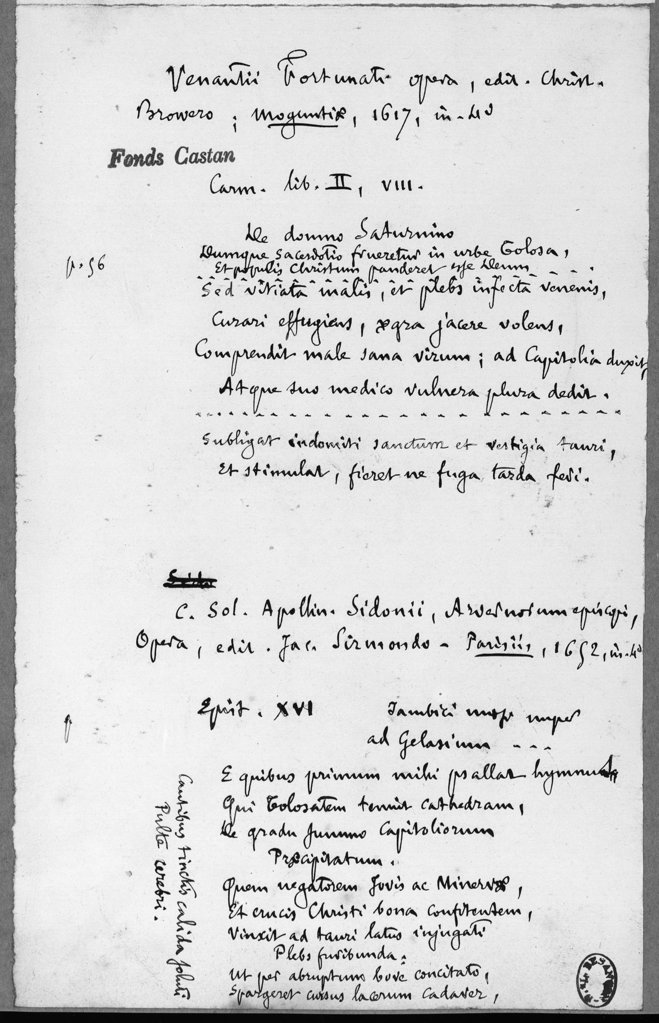 Venantii Fortunati opera, edit. Christ.
Browero ; Moguntiæ, 1617, in-4º
Fonds Castan
Carm. lib. II, VIII.
De domno Saturnino
p. 56
Dumque sacerdotio frueretur in urbe Tolosa,
Et populis Christum panderet esse Deum
Sed vitiata malis, et plebs infecta venenis,
Curari effugiens, ægra jacere volens,
Comprendit male sana virum ; ad Capitolia duxit,
Atque suo medico vulnera plura dedit.
Subligat indomiti sanctum et vestigia tauri,
Et stimulat, fieret ne fuga tarda feri.
C. Sol. Apollin. Sidonii, Arvernorum episcopi,
Opera, edit. Jac. Sirmondo - Parisiis, 1652, in-4º
p
Epist. XVI
Iambici nuper
ad Gelasium ---
E quibus primum mihi psallat hymnus
Qui Tolosatem tenuit cathedram,
De gradu summo Capitoliorum
Præcipitatum.
Quem negatorem Jovis ac Minervæ,
Et crucis Christi bona confitentem,
Vinxit ad tauri latus injugati
Plebs furibunda.
Ut per abruptum bove concitato,
Spargeret cursus lacerum cadaver,
Cautibus tinctis calida soluti
Pulte cerebri.